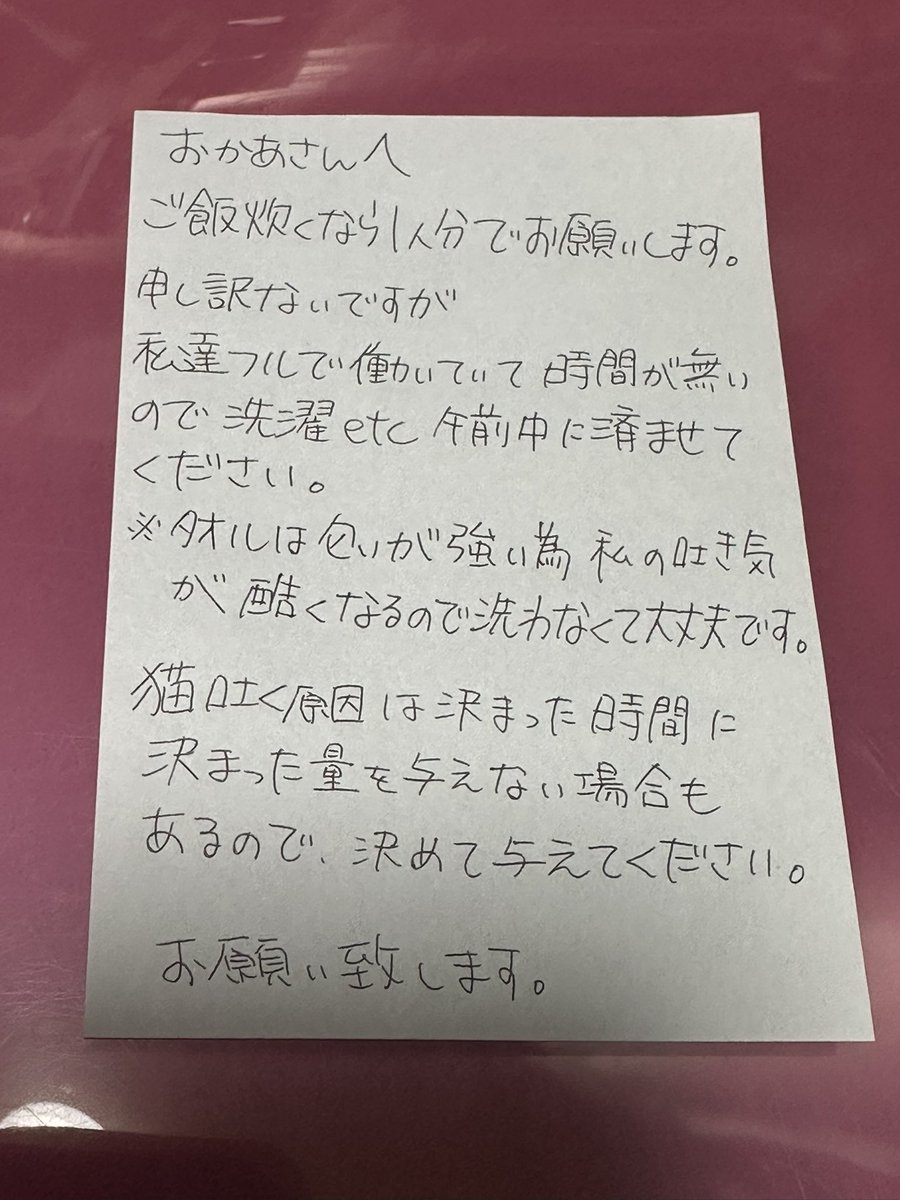 おかあさんへ
ご飯炊くなら1人分でお願いします。
申し訳ないですが
私達フルで働いていて時間が無い
ので洗濯etc午前中に済ませて
ください。
※タオルは匂いが強い為私の吐き気
が酷くなるので洗わなくて大丈夫です。
猫吐く原因は決まった時間に
決まった量を与えない場合も
あるので、決めて与えてください。
お願い致します。